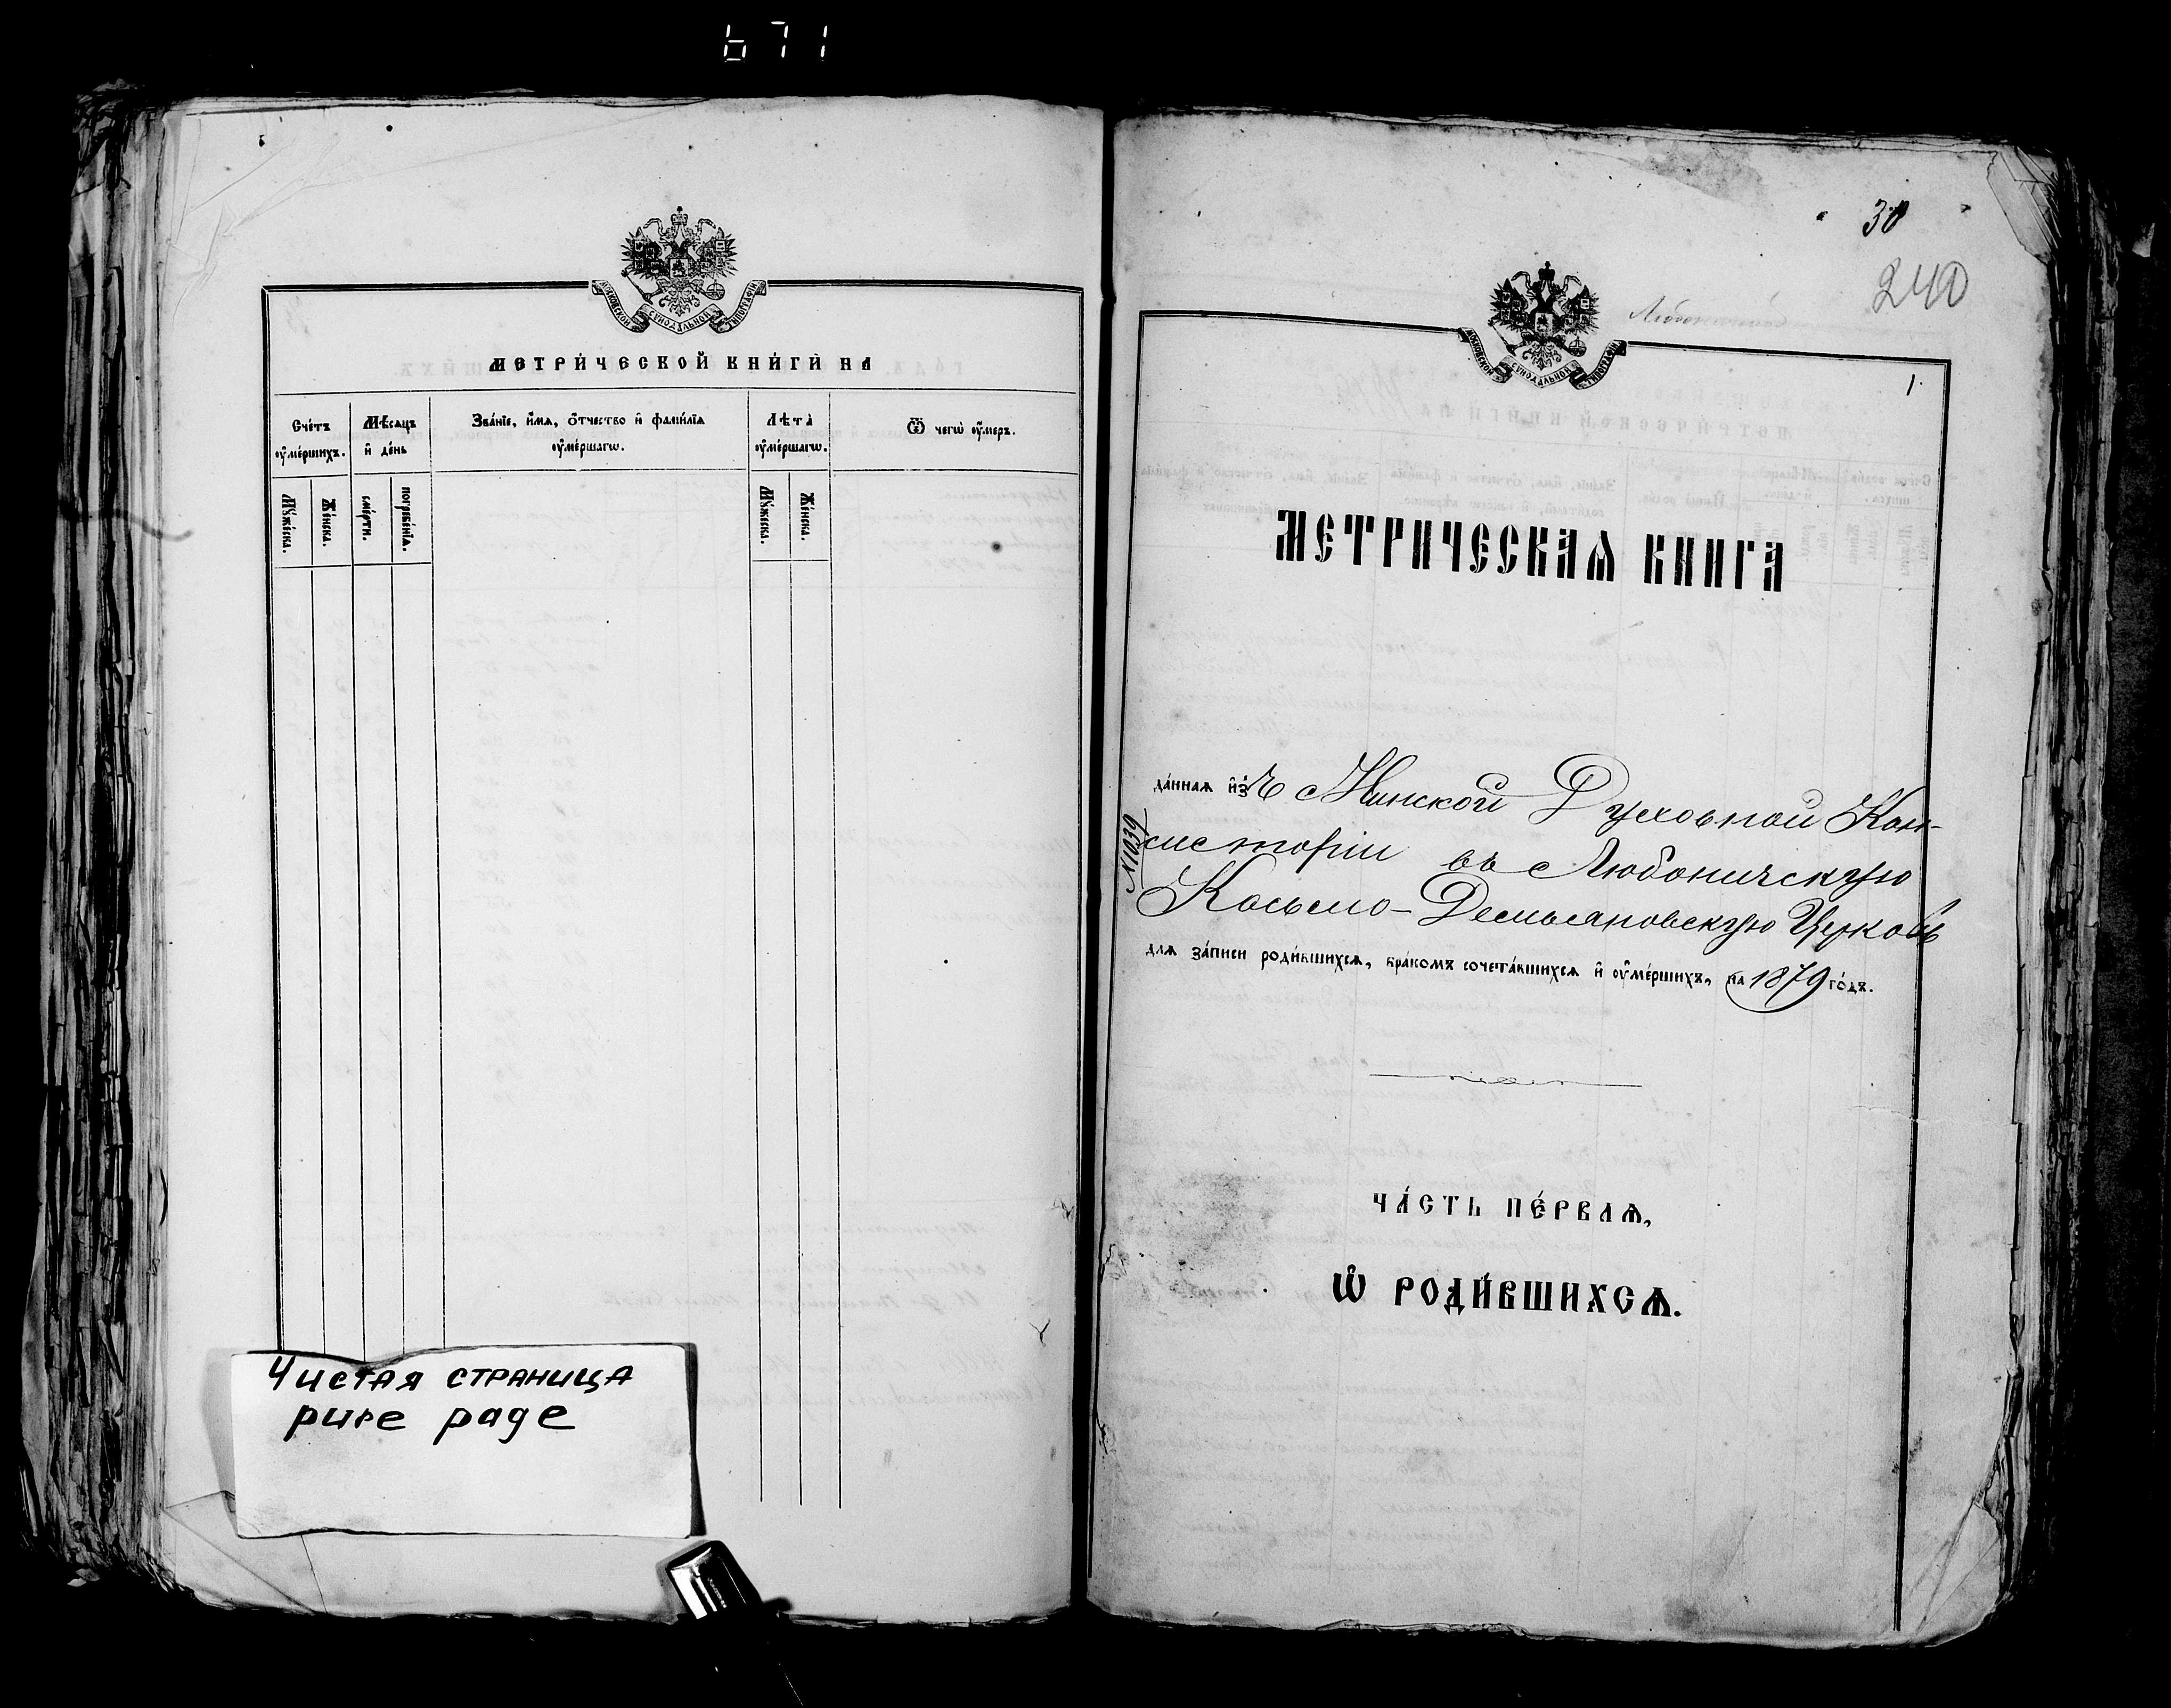 671
МОСКОВСКОЙ СѴНОДАЛЬНОЙ ТИПОГРАФІИ
МЕТРИ́ЧЕСКОЙ КНИ́ГИ НА
Сче́тъ ᲂу҆ме́ршихъ.
Мѣ́сяцъ и҆ де́нь
Зва́нїе, и҆́мѧ, ѻ҆́тчество и҆ фами́лїѧ ᲂу҆ме́ршагѡ.
Лѣ́та ᲂу҆ме́ршагѡ.
Ѿ чегѡ̀ ᲂу҆́меръ.
Мꙋ́жеска.
Же́нска.
сме́рти.
погребе́нїѧ.
Мꙋ́жеска.
Же́нска.
Чистая страница
pure page
30
240
МОСКОВСКОЙ СѴНОДАЛЬНОЙ ТИПОГРАФІИ
1.
МЕТРИЧЕСКАѦ КНИГА
да́ннаѧ и҆зъ Минской Духовной Кон-
систоріи въ Любоничскую
№1039
Косьмо-Демьяновскую Церковь
для за́писи роди́вшихсѧ, бра́комъ сочета́вшихсѧ и҆ ᲂу҆ме́ршихъ, на 1879 го́дъ.
ЧА́СТЬ ПЕ́РВАѦ,
Ѡ҆ РОДИ́ВШИХСѦ.